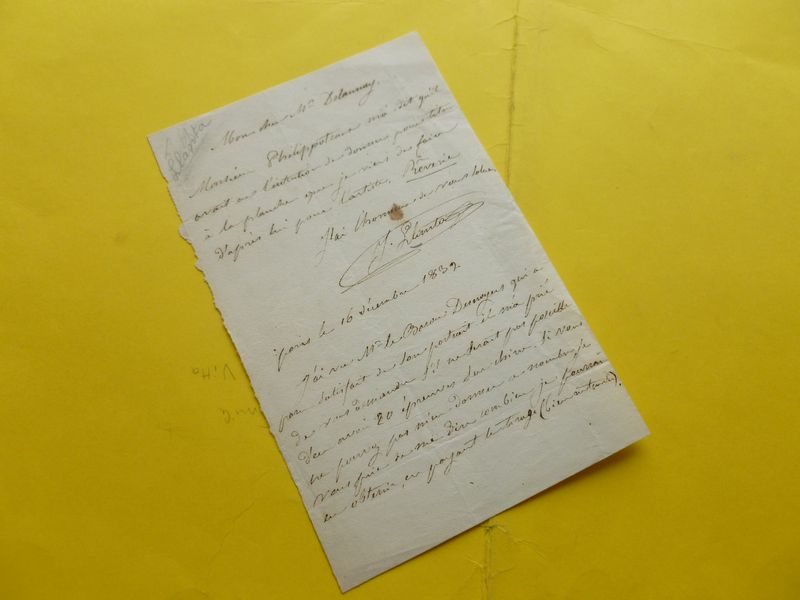 Llanta
Mon cher Mr Delaunay,
Monsieur Philippoteaux m'a dit qu'il
avait eu l'intention de donner pour titre
à la planche que je viens de faire
d'après lui pour l'artiste. Rêverie
J'ai l'honneur de vous saluer
J. Llanta
Paris le 16 décembre 1839
J'ai vu Mr le Baron Desnoyers qui a
paru satisfait de son portrait et m'a prié
de vous demander s'il ne serait pas possible
d'en avoir 20 épreuves sur chine. Si vous
ne pouvez pas m'en donner ce nombre je
vous prie de me dire combien je pourrai
en obtenir, en payant le tirage (bien entendu).
Vitta